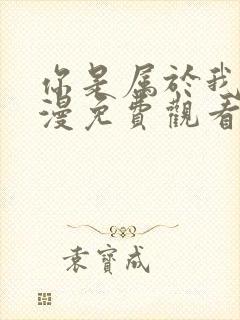 你是属於我
漫免費觀看
袁寶成